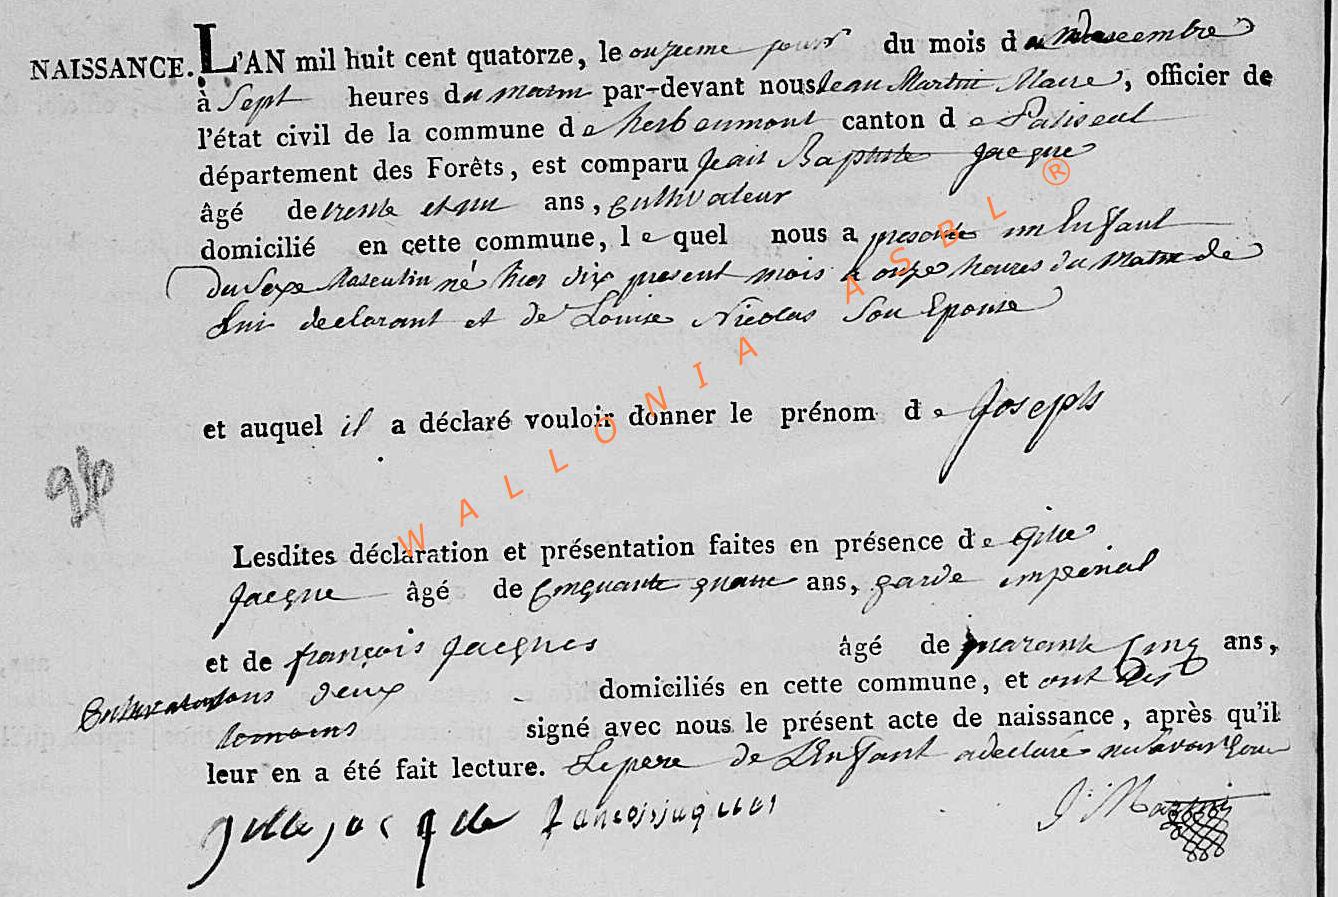 NAISSANCE. L'AN mil huit cent quatorze, le onzieme jour du mois de decembre
à Sept heures du matin par-devant nous Jean Martin Maire, officier de
l'état civil de la commune de herbeumont canton de Paliseul
département des Forêts, est comparu Jean Baptiste Jacque
âgé de trente et un ans, Cultivateur
domicilié en cette commune, le quel nous a presenté un Enfant
du Sexe Masculin né hier dix present mois a onze heures du matin de
lui declarant et de Louise Nicolas Son Epouse
et auquel il a déclaré vouloir donner le prénom de Joseph
Lesdites déclaration et présentation faites en présence de Gille
Jacque âgé de Cinquante quatre ans, garde imperial
et de françois Jacques âgé de quarante Cinq ans,
tous deux domiciliés en cette commune, et ont
temoins signé avec nous le présent acte de naissance, après qu'il
leur en a été fait lecture. Le pere de L'Enfant a declaré
gille jacque J: Martin
WALLONIA ASBL ®